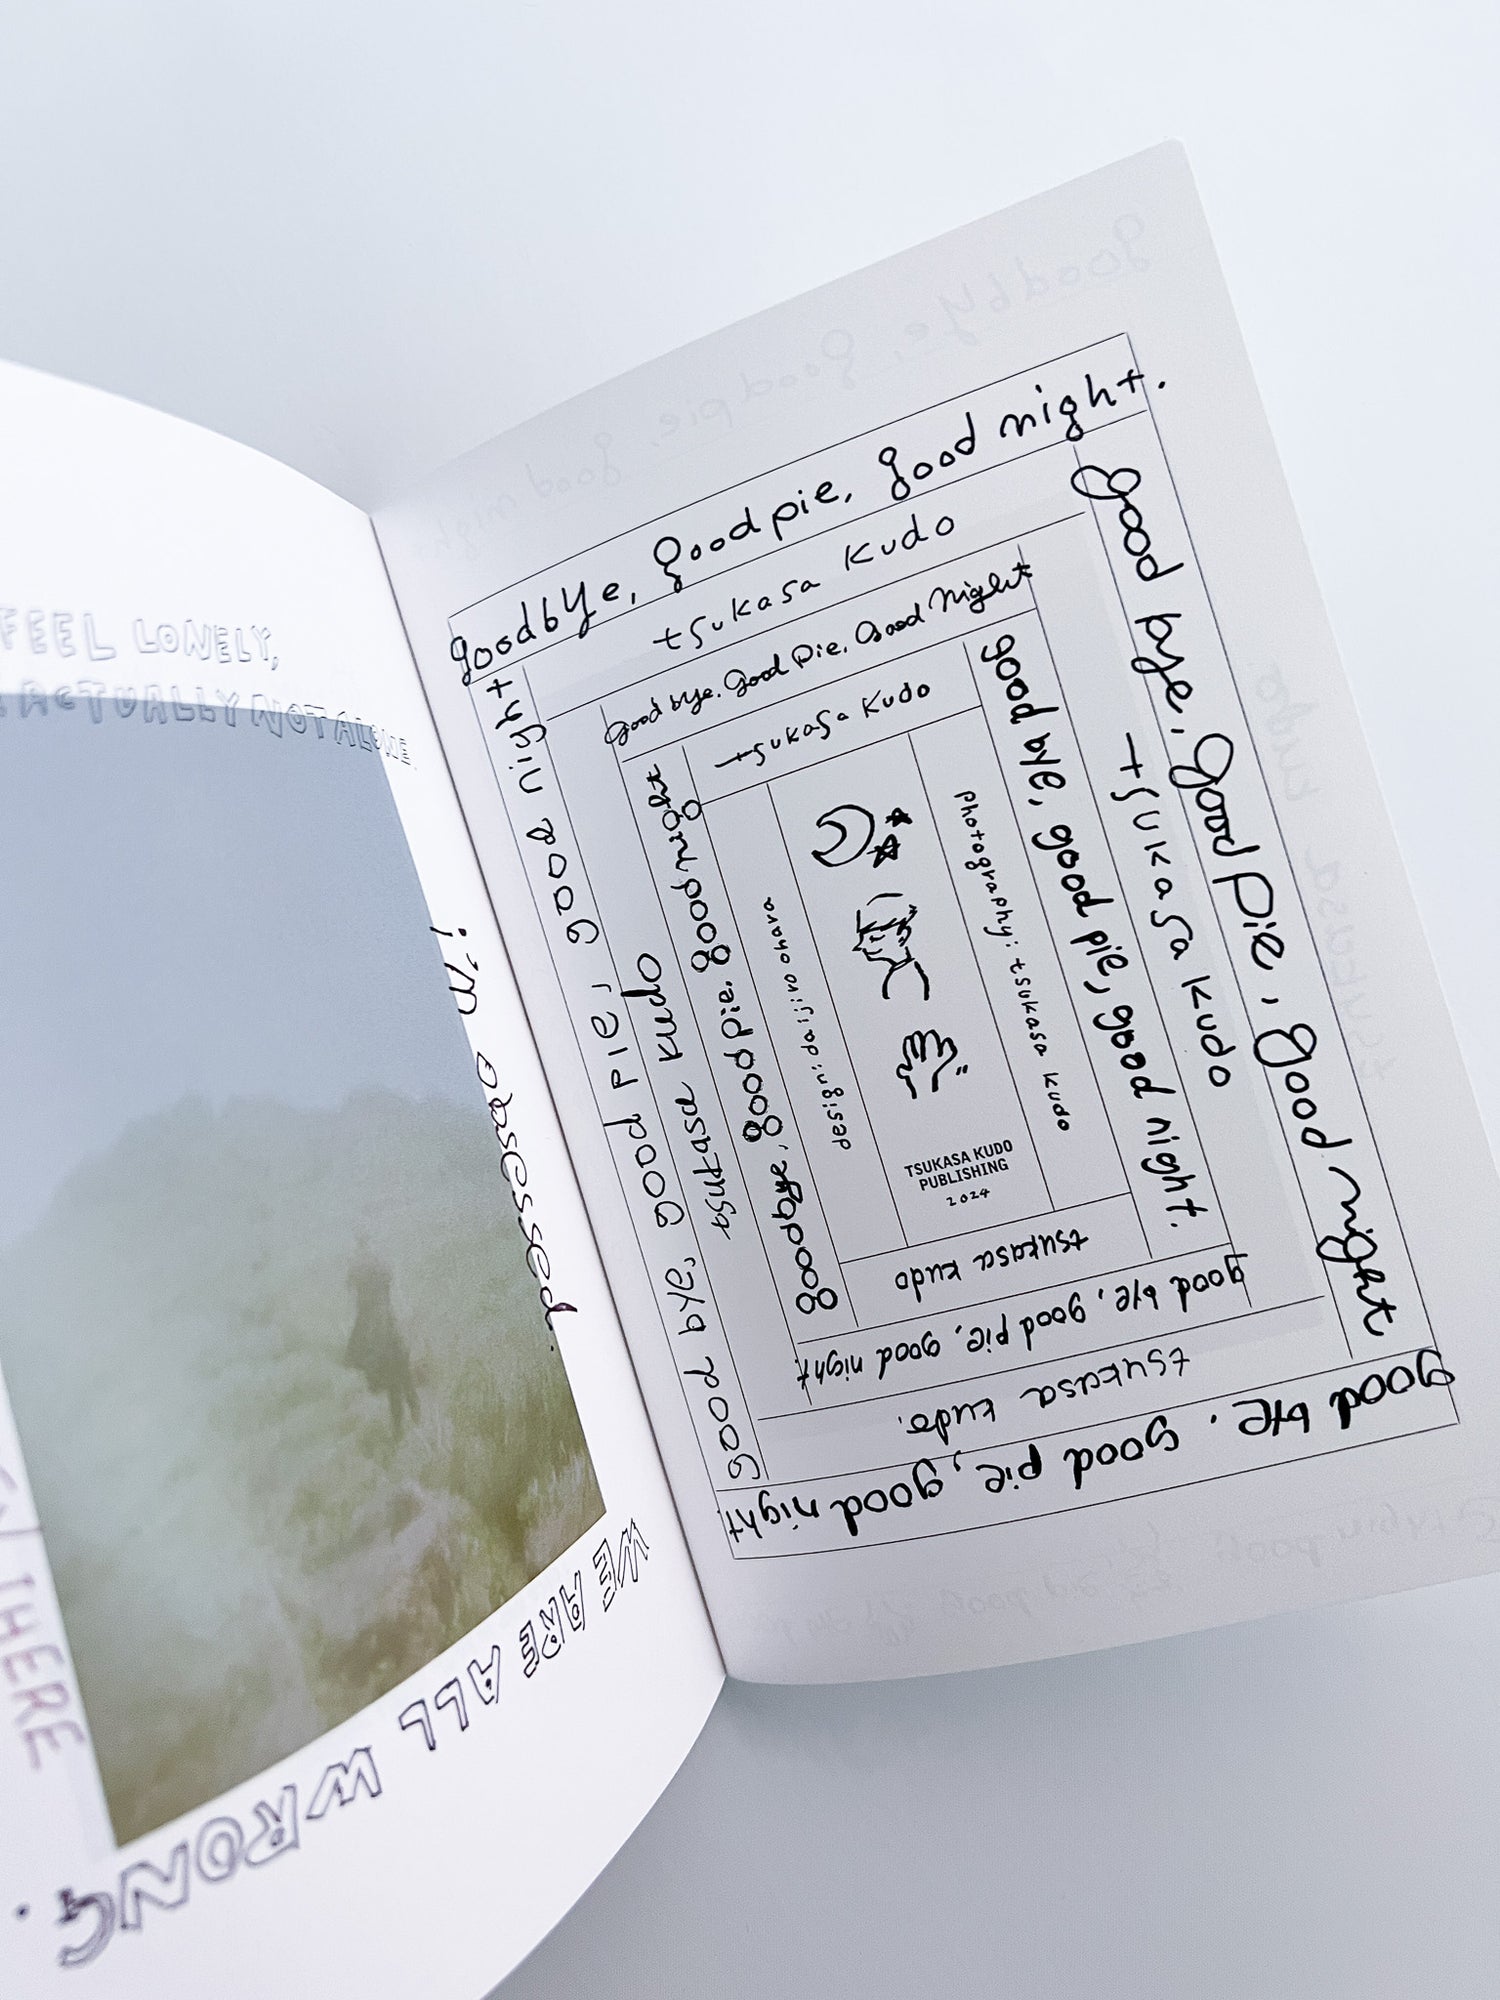 FEEL LONELY,
ACTUALLY NOT ALONE.
i'm obsessed.
THERE
WE ARE ALL WRONG.
goodbye, good pie, good night.
tsukasa kudo
good bye, good pie, good night
tsukasa kudo
good bye. good pie, good night.
tsukasa kudo.
Good bye, Good pie, Good night
tsukasa kudo
Good bye. Good Pie. Good Night
tsukasa kudo
good bye, good pie, good night.
good bye, good pie, good night.
tsukasa kudo
goodbye, good pie, good night
photography: tsukasa kudo
design: jiro ohara
TSUKASA KUDO
PUBLISHING
2024